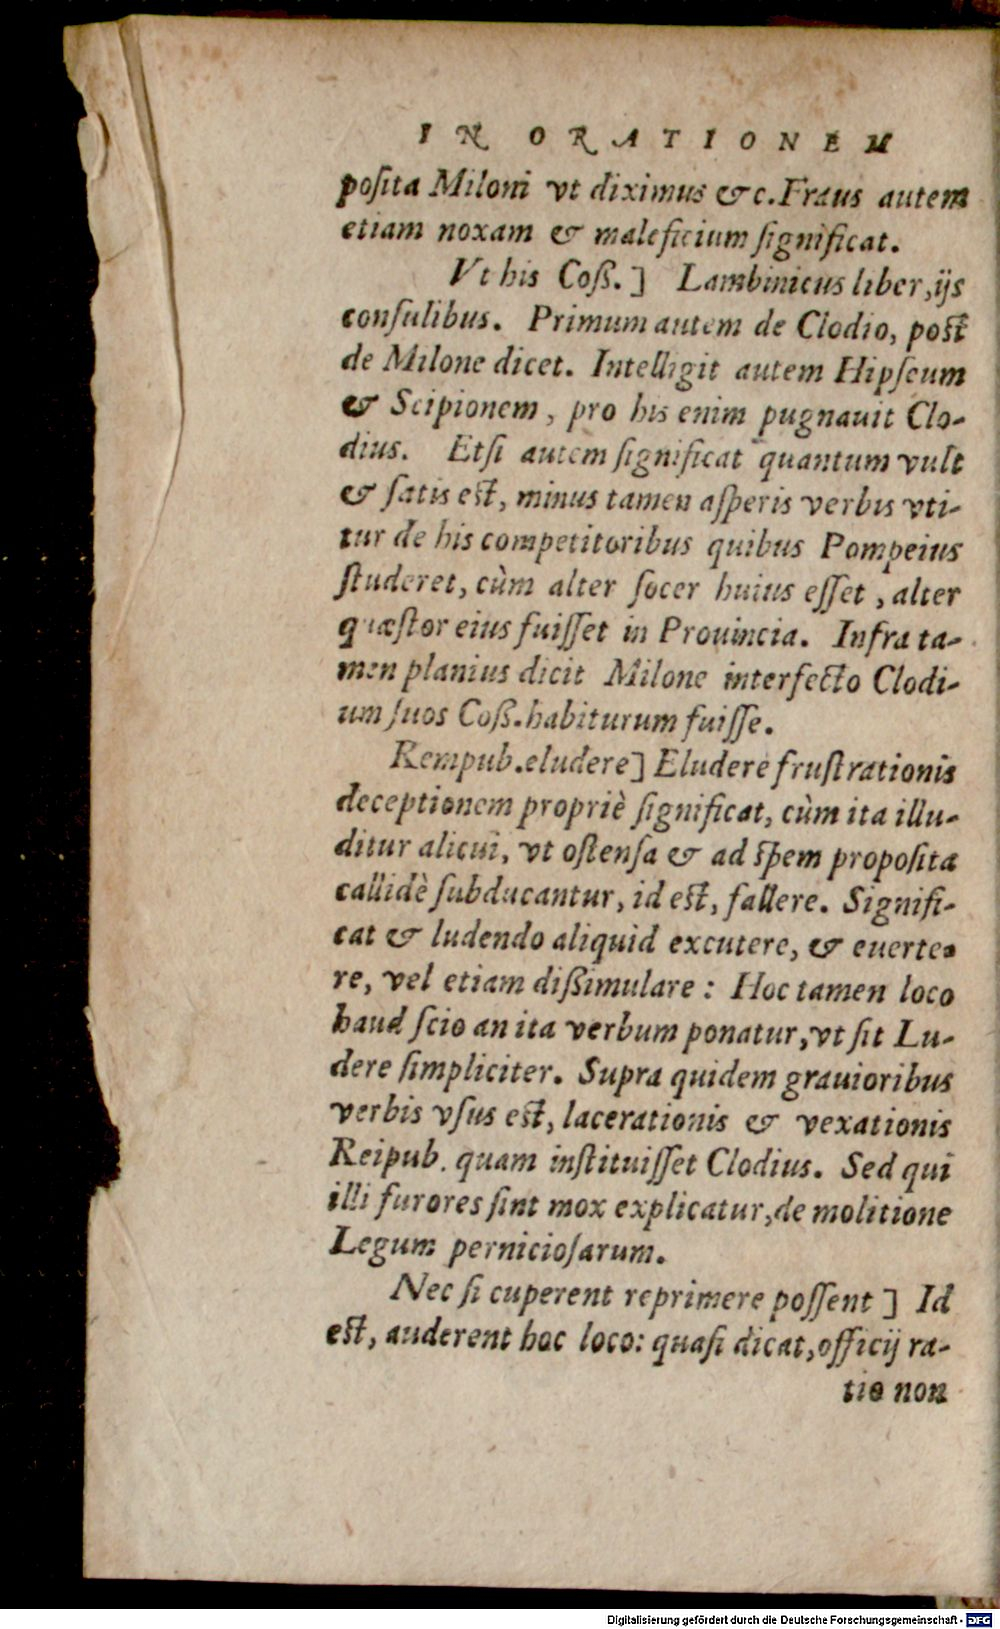 IN ORATIONEM
posita Miloni vt diximus &c. Fraus autem
etiam noxam & maleficium significat.
Vt his Coß.] Lambinicus liber, ijs
consulibus. Primum autem de Clodio, post
de Milone dicet. Intelligit autem Hipseum
& Scipionem, pro his enim pugnauit Clo-
dius. Etsi autem significat quantum vult
& satis est, minus tamen asperis verbis vti-
tur de his competitoribus quibus Pompeius
studeret, cùm alter socer huius esset, alter
quæstor eius fuisset in Prouincia. Infra ta-
men planius dicit Milone interfecto Clodi-
um suos Coß. habiturum fuisse.
Rempub. eludere] Eludere frustrationis
deceptionem propriè significat, cùm ita illu-
ditur alicui, vt ostensa & ad spem proposita
callidè subducantur, id est, fallere. Signifi-
cat & ludendo aliquid excutere, & euerte-
re, vel etiam dißimulare: Hoc tamen loco
haud scio an ita verbum ponatur, vt sit Lu-
dere simpliciter. Supra quidem grauioribus
verbis vsus est, lacerationis & vexationis
Reipub. quam instituisset Clodius. Sed qui
illi furores sint mox explicatur, de molitione
Legum perniciosarum.
Nec si cuperent reprimere possent] Id
est, auderent hoc loco: quasi dicat, officij ra-
tio non
Digitalisierung gefördert durch die Deutsche Forschungsgemeinschaft - DFG